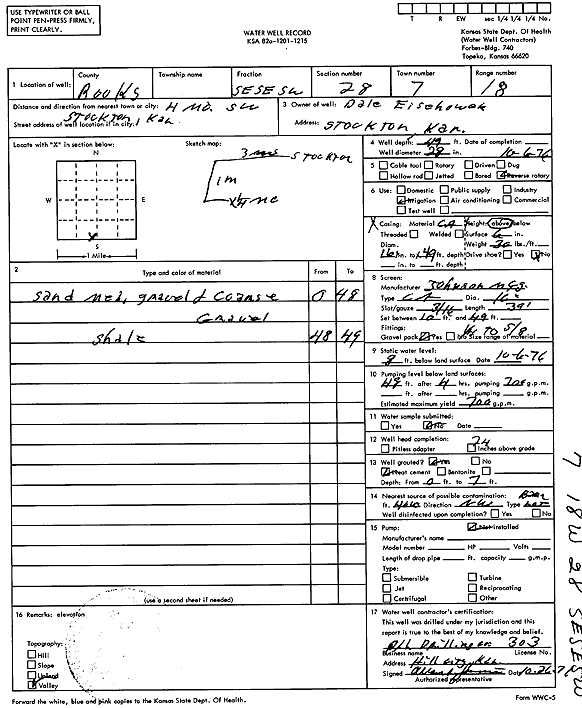 USE TYPEWRITER OR BALL
POINT PEN-PRESS FIRMLY,
PRINT CLEARLY.
WATER WELL RECORD
KSA 82a-1201-1215
T R EW sec 1/4 1/4 1/4 No.
Kansas State Dept. Of Health
(Water Well Contractors)
Forbes-Bldg. 740
Topeka, Kansas 66620
1 Location of well: County Rooks Township name Fraction SESESW Section number 28 Town number 7 Range number 18
Distance and direction from nearest town or city: 4 Mo. SW
Street address of well location if in city: STOCKTON, Kan.
3 Owner of well: Dale
Address: STOCKTON, Kan.
Locate with "X" in section below:
N
W E
S
1 Mile
Sketch map:
3 STOCKTON
1m
4 Well depth: 49 ft. Date of completion
Well diameter 28 in. 10-6-76
5 Cable tool Rotary Driven Dug
Hollow rod Jetted Bored Reverse rotary
6 Use: Domestic Public supply Industry
Irrigation Air conditioning Commercial
Test well
7 Casing: Material CA Height: above/below
Threaded Welded Surface 6 in.
Diam. Weight 30 lbs./ft.
16 in. to 49 ft. depth Drive shoe? Yes No
in. to ft. depth
2 Type and color of material From To
Sand Med, gravel & Coarse 0 48
Gravel
Shale 48 49
(use a second sheet if needed)
8 Screen:
Manufacturer Johnson
Type CA Dia. 16"
Slot/gauze 3/16 Length 39'
Set between 10 ft. and 49 ft.
Fittings:
Gravel pack Yes No Size range of material 1/4 TO 5/8
9 Static water level:
8 ft. below land surface Date 10-6-76
10 Pumping level below land surfaces:
49 ft. after 4 hrs. pumping 700 g.p.m.
ft. after hrs. pumping g.p.m.
Estimated maximum yield 700 g.p.m.
11 Water sample submitted:
Yes No Date
12 Well head completion: 24
Pitless adapter Inches above grade
13 Well grouted? Yes No
Neat cement Bentonite
Depth: From 0 ft. to 7 ft.
14 Nearest source of possible contamination:
ft. Direction Type
Well disinfected upon completion? Yes No
15 Pump: Not installed
Manufacturer's name
Model number HP Volts
Length of drop pipe ft. capacity g.m.p.
Type:
Submersible Turbine
Jet Reciprocating
Certrifugal Other
16 Remarks: elevation
Topography:
Hill
Slope
Upland
Valley
17 Water well contractor's certification:
This well was drilled under my jurisdiction and this
report is true to the best of my knowledge and belief.
Drilling 303
Business name License No.
Address Hill City, Kan
Signed Date 10-26-7
Authorized representative
Forward the white, blue and pink copies to the Kansas State Dept. Of Health.
Form WWC-5
7 18W 28 SESESW